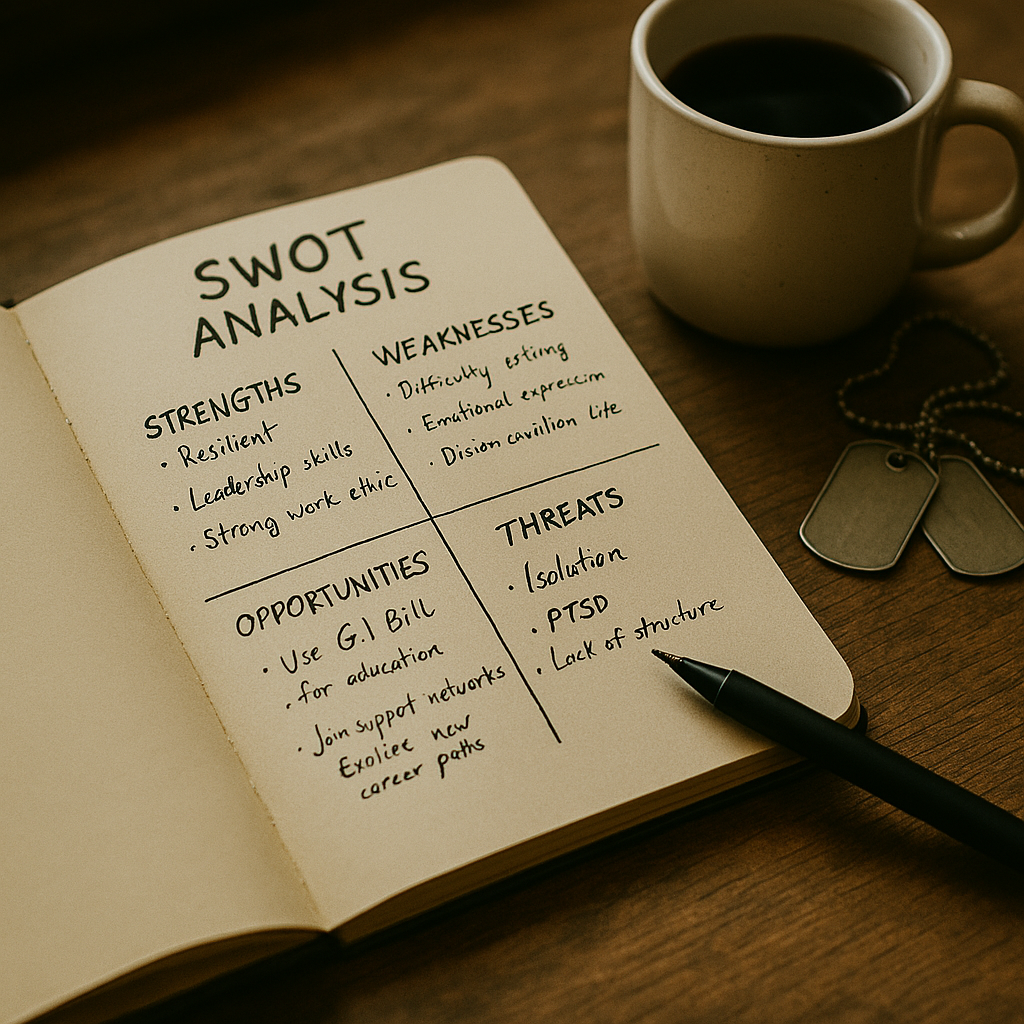 SWOT
ANALYSIS
STRENGTHS
• Resilient
• Leadership skills
• Strong work ethic
WEAKNESSES
• Difficulty
• Emotional
• Life
OPPORTUNITIES
• Use G.I Bill
• for aducation
• Join suppot networks
new
career paths
THREATS
• Isolution
• PTSD
• Lack of structure